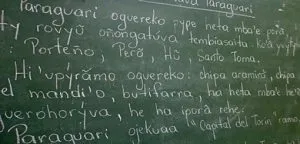 Paraguari
Paraguari oguereko ype heta mba'e porã,
ty rovyũ oñongatúva tembiasaita. Ko'ã
: Porteño, Perõ, Hũ, Santo Toma.
Hi'upyrãmo oguereko: chipa aramirõ, chipa
el mandi'o, butifarra, ha heta mba'e he'ẽ
guerohorýva, he ha iporã rehe.
Paraguari ojekuaa "Capital del Torin" ramo,